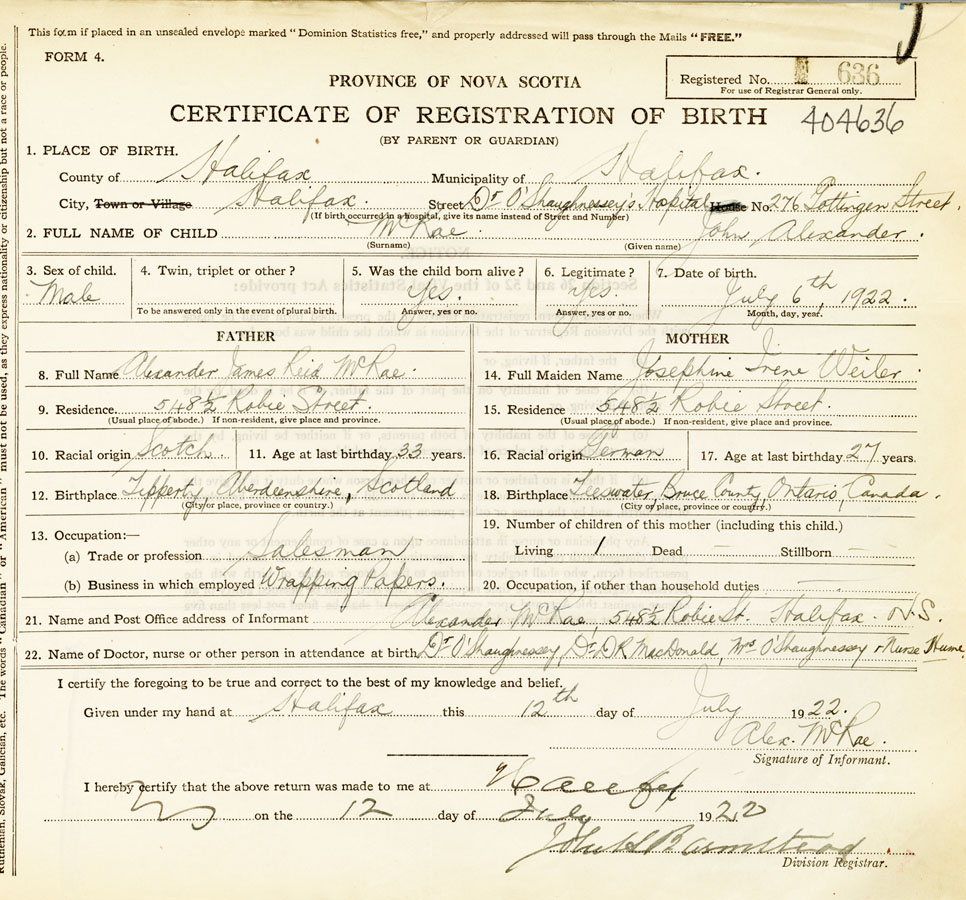 This form if placed in an unsealed envelope marked "Dominion Statistics free," and properly addressed will pass through the Mails "FREE."
FORM 4.
PROVINCE OF NOVA SCOTIA
Registered No. 636
For use of Registrar General only.
CERTIFICATE OF REGISTRATION OF BIRTH
404636
(BY PARENT OR GUARDIAN)
1. PLACE OF BIRTH.
County of Halifax Municipality of Halifax.
City, Town or Village Halifax. Street Dr O'Shaughnessey's Hospital House No. 276 Gottingen Street.
(If birth occurred in a hospital, give its name instead of Street and Number)
2. FULL NAME OF CHILD McRae. John Alexander.
(Surname) (Given name)
3. Sex of child. 4. Twin, triplet or other? 5. Was the child born alive? 6. Legitimate? 7. Date of birth.
Male Yes. Yes. July 6th, 1922.
To be answered only in the event of plural birth. Answer, yes or no. Answer, yes or no. Month, day, year.
FATHER MOTHER
8. Full Name Alexander James Reid McRae. 14. Full Maiden Name Josephine Irene Weiler.
9. Residence 548½ Robie Street. 15. Residence 548½ Robie Street.
(Usual place of abode.) If non-resident, give place and province. (Usual place of abode.) If non-resident, give place and province.
10. Racial origin Scotch. 11. Age at last birthday 33 years. 16. Racial origin German 17. Age at last birthday 27 years.
12. Birthplace Tipperty, Aberdeenshire, Scotland 18. Birthplace Teeswater, Bruce County, Ontario, Canada.
(City or place, province or country.) (City or place, province or country.)
13. Occupation:— 19. Number of children of this mother (including this child.)
(a) Trade or profession Salesman Living 1 Dead — Stillborn —
(b) Business in which employed Wrapping Papers. 20. Occupation, if other than household duties
21. Name and Post Office address of Informant Alexander McRae, 548½ Robie St. Halifax. N.S.
22. Name of Doctor, nurse or other person in attendance at birth Dr O'Shaughnessey, Dr D R MacDonald, Mrs O'Shaughnessey & Nurse Hume.
I certify the foregoing to be true and correct to the best of my knowledge and belief.
Given under my hand at Halifax this 12th day of July 1922.
Alex. McRae.
Signature of Informant.
I hereby certify that the above return was made to me at Halifax
on the 12 day of July 1922
John H Barnstead
Division Registrar.
Ruthenian, Slovak, Galician, etc. The words "Canadian" or "American" must not be used, as they express nationality or citizenship but not a race or people.